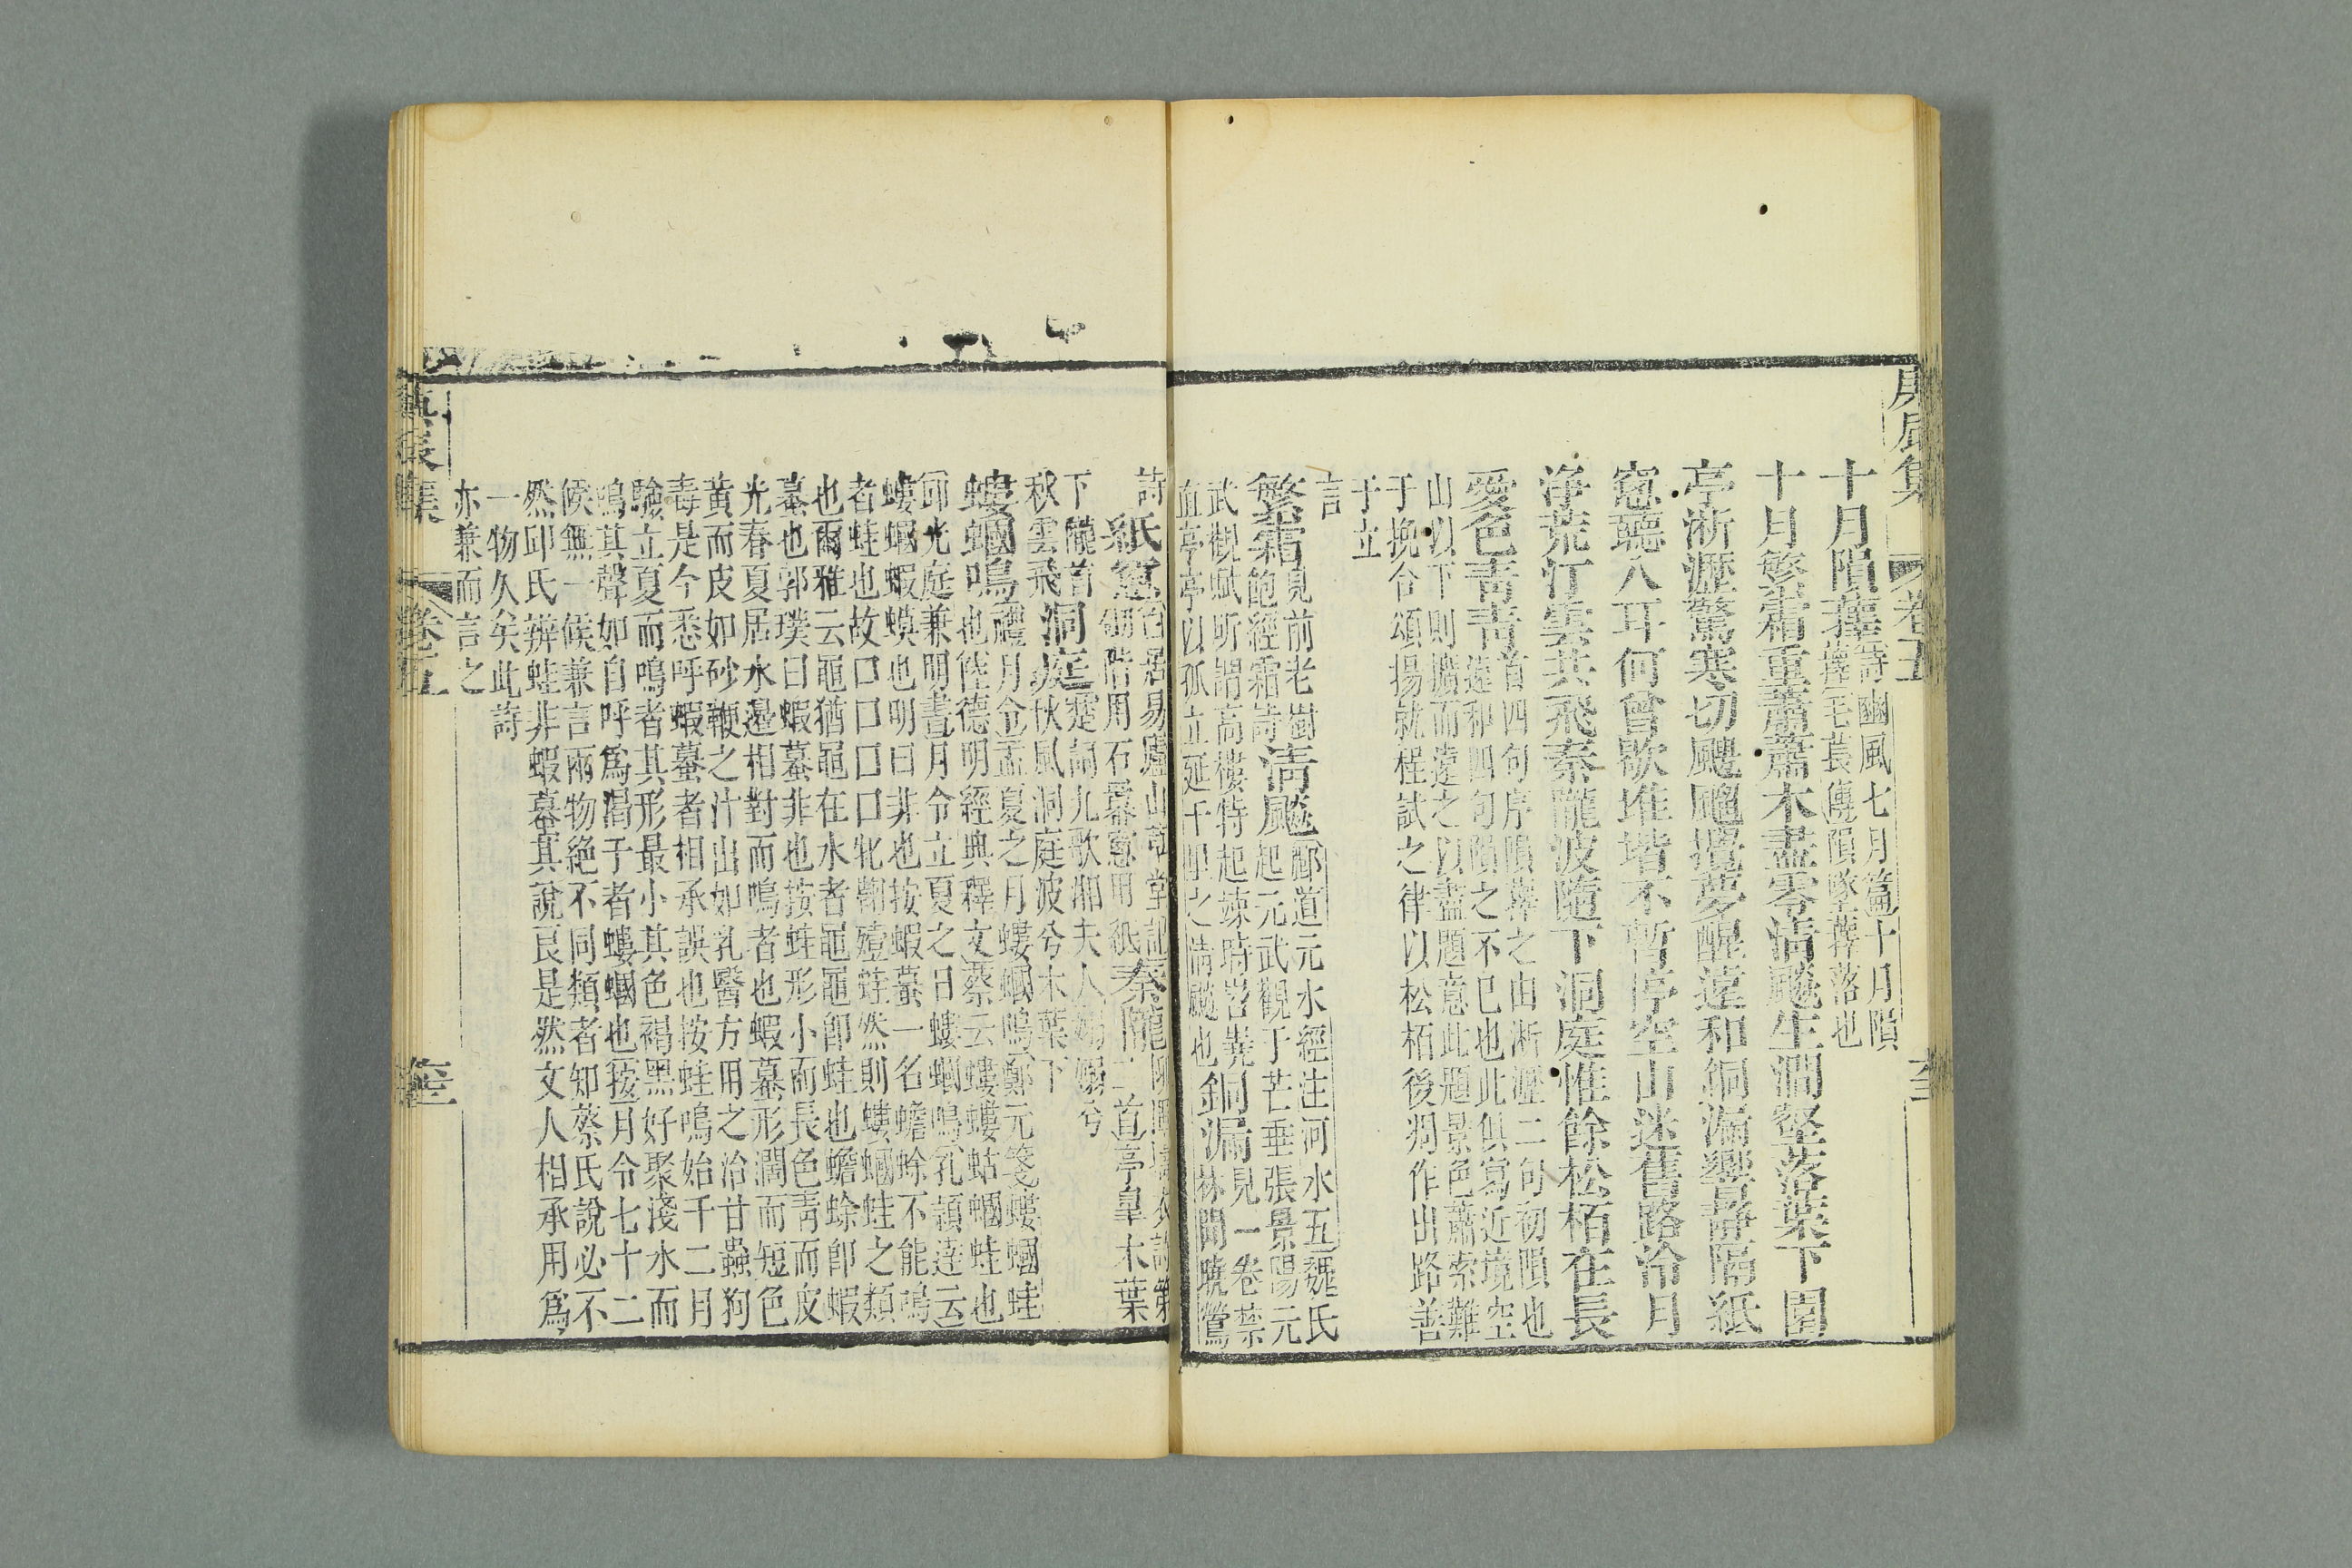 十月隕蘀詩豳風七月篇十月隕
蘀毛萇傳隕墜蘀落也
十月繁霜重蕭蕭木盡零清飈生澗壑落葉下園
亭淅瀝驚寒切颼飀攪夢醒遠和銅漏響靜隔紙
窓聽入耳何曾歇堆堦不暫停空山迷舊路冷月
淨荒汀雲共飛秦隴波隨下洞庭惟餘松栢在長
愛色青青首四句序隕蘀之由淅瀝二句初隕也
遠和四句隕之不已也此俱寫近境空
山以下則擴而遠之以盡題意此題景色蕭索難
于挽合頌揚就程試之律以松栢後凋作出路善
于立
言
繁霜見前老樹
飽經霜詩清飈酈道元水經注河水五魏氏
起元武觀于芒垂張景陽元
武觀賦所謂高樓特起竦峙岧嶤
直亭亭以孤立延千里之清飈也銅漏見一卷禁
林聞曉鶯
詩紙窓白居易廬山草堂記
砌階用石羃窓用紙秦隴
二首亭皐木葉
下隴首
秋雲飛洞庭楚詞九歌湘夫人嫋嫋兮
秋風洞庭波兮木葉下
螻蟈鳴禮月令孟夏之月螻蟈鳴鄭元箋螻蟈蛙
也陸德明經典釋文蔡云螻螻蛄蟈蛙也
卬光庭兼明書月令立夏之日螻蟈鳴孔穎達云
螻蟈蝦蟆也明曰非也按蝦蟇一名蟾蜍不能鳴
者蛙也故囗囗囗囗牝蘜殪蛙然則螻蟈蛙之類
也爾雅云黽猶黽在水者黽黽卽蛙也蟾蜍卽蝦
蟇也郭璞曰蝦蟇非也按蛙形小而長色青而皮
光春夏居水邊相對而鳴者也蝦蟇形濶而短色
黃而皮如砂鞭之汁出如乳醫方用之治甘蟲狗
毒是今悉呼蝦蟇者相承誤也按蛙鳴始于二月
驗立夏而鳴者其形最小其色褐黑好聚淺水而
鳴其聲如自呼爲渴于者螻蟈也按月令七十二
候無一候兼言兩物絕不同類者知蔡氏說必不
然邱氏辨蛙非蝦蟇其說良是然文人相承用爲
一物久矣此詩
亦兼而言之
卷五